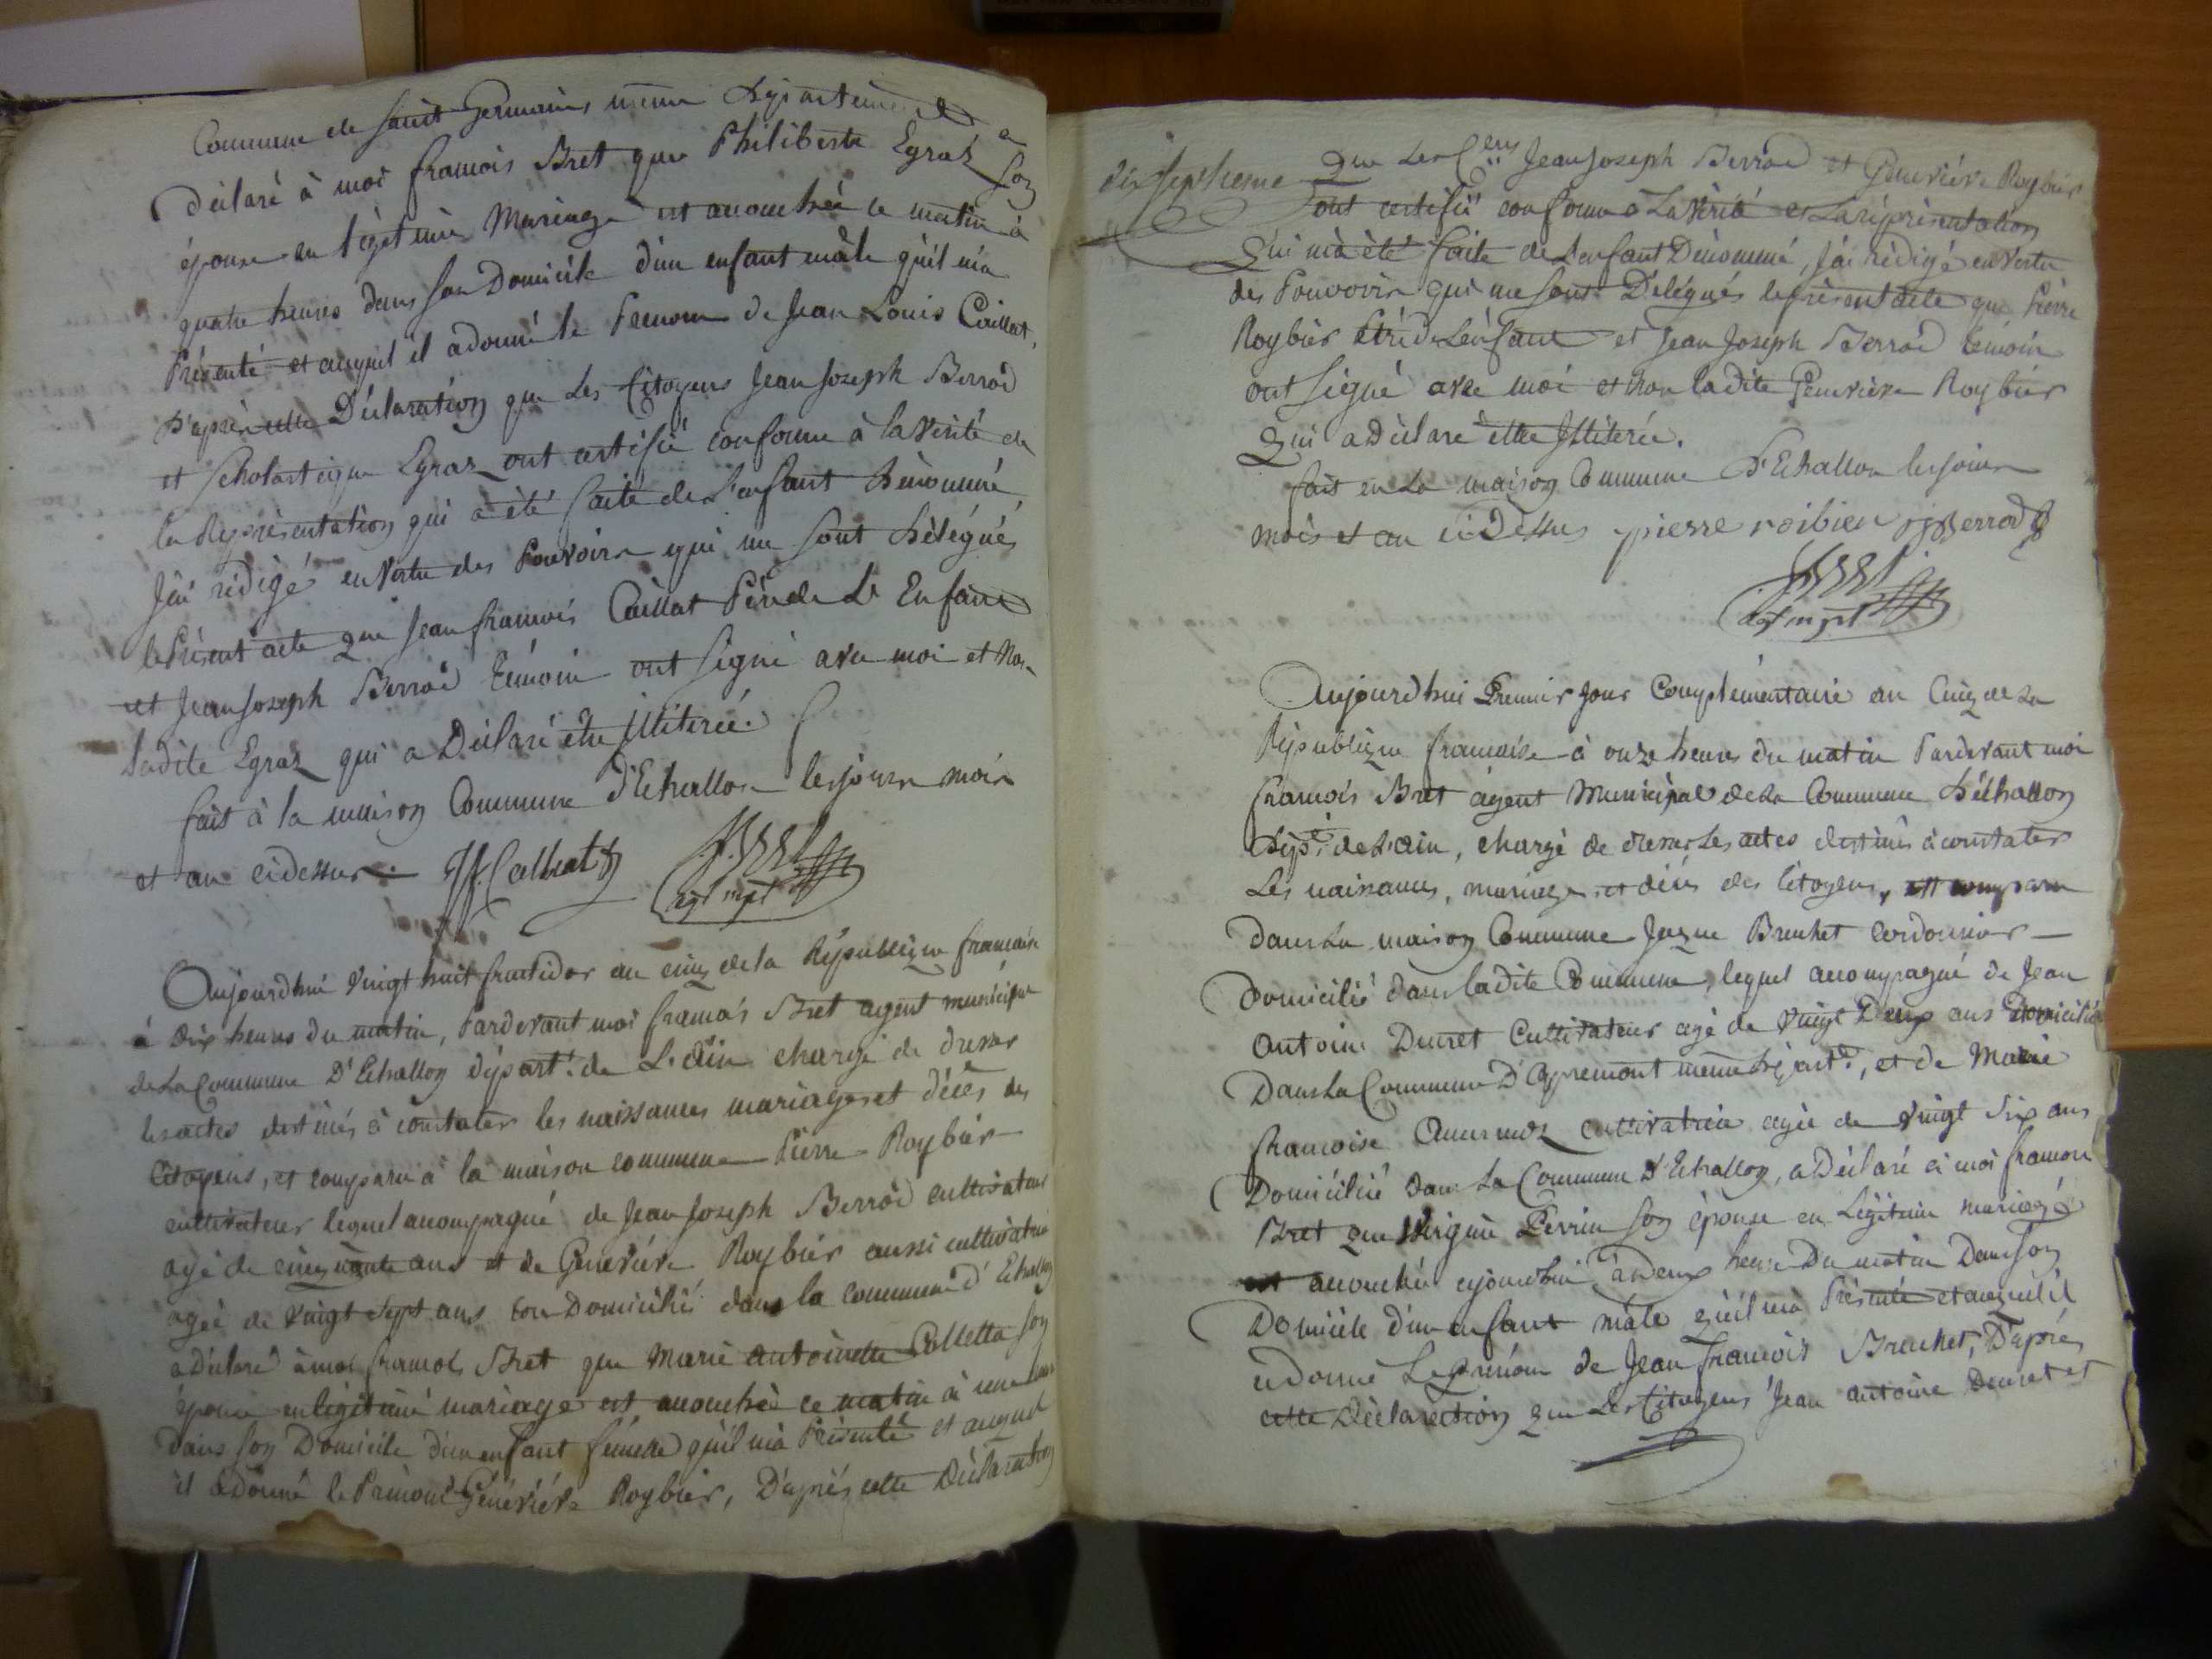 Commune de Saint Germain, même Département a
Déclaré à moi francois Bret que Philiberte Egraz son
épouse en légitime Mariage est accouchée ce matin à
quatre heures dans son Domicile d'un enfant mâle qu'il m'a
Présenté et auquel il a donné le Prenom de Jean Louis Caillat,
D'après cette Déclaration que les Citoyens Jean Joseph Berrod
et Scholastique Egraz ont certifié conforme à la Vérité de
la Représentation qui a été faite de L'enfant Dénommé
J'ai rédigé en Vertu des Pouvoirs qui me sont Délégués
le Présent acte que Jean francois Caillat Père de L'Enfant
et Jean Joseph Berrod témoin ont signé avec moi et Non
ladite Egraz qui a Déclaré être Illiterée.
fait à la maison Commune d'Echallon les jours mois
et an cidessus. JfCalliat
agt mpl
Aujourdhui Vingt huit fructidor an cinq de la République francaise
à dix heures du matin, Pardevant moi francois Bret agent municipal
de La Commune D'Echallon départ.t de L'ain chargé de dresser
les actes destinés à constater les naissances mariages et décès des
Citoyens, est comparu à la maison commune Pierre Roybier
cultivateur lequel accompagné de Jean Joseph Berrod cultivateur
agé de cinquante ans et de Genevieve Roybier aussi cultivatrice
agée de Vingt sept ans tous Domiciliés dans la commune d'Echallon
a déclaré à moi francois Bret que Marie antoinette Colletta son
épouse en légitime mariage est accouchée ce matin à une heure
dans son Domicile d'un enfant femelle qu'il m'a Présenté et auquel
il a donné le Prénom Génévieve Roybier, D'après cette Déclaration
dix septieme
Que Les C.ens Jean Joseph Berrod et Genevieve Roybier
ont certifié conforme à La Vérité et La représentation
Qui m'a été faite de L'enfant Dénommé, J'ai rédigé en Vertu
des Pouvoirs qui me sont Délégués le présent acte que Pierre
Roybier Père de L'enfant et Jean Joseph Berrod témoin
ont signé avec moi et non ladite Genevieve Roybier
Qui a Déclaré être Illiterée.
fait en La maison Commune D'Echallon les jours
mois et an ci Dessus pierre roibier jjBerrod
agt mpl
Aujourdhui Premier jour Complémentaire an Cinq de La
République francaise à onze heures du matin Pardevant moi
francois Bret agent Municipal de La Commune d'échallon
Dép.t de L'ain, chargé de dresser Les actes destinés à constater
Les naissances, mariages et décès des Citoyens, est comparu
dans La maison Commune Jaque Bruchet cordonnier
Domicilié dans ladite Commune, lequel accompagné de Jean
Antoine Ducret Cultivateur agé de Vingt Deux ans Domicilié
Dans La Commune D'Apremont même départ.t, et de Marie
francoise cultivatrice agée de Vingt Six ans
Domiciliée dans La Commune D'Echallon, a Déclaré à moi francois
Bret que Perrin son épouse en Légitime mariage
est accouchée ajourdhui à deux heures Du matin Dans son
Domicile d'un enfant mâle qu'il m'a Présenté et auquel il
a donné Le prénom de Jean francois Bruchet, D'après
cette Déclaration que Les Citoyens Jean antoine Ducret et